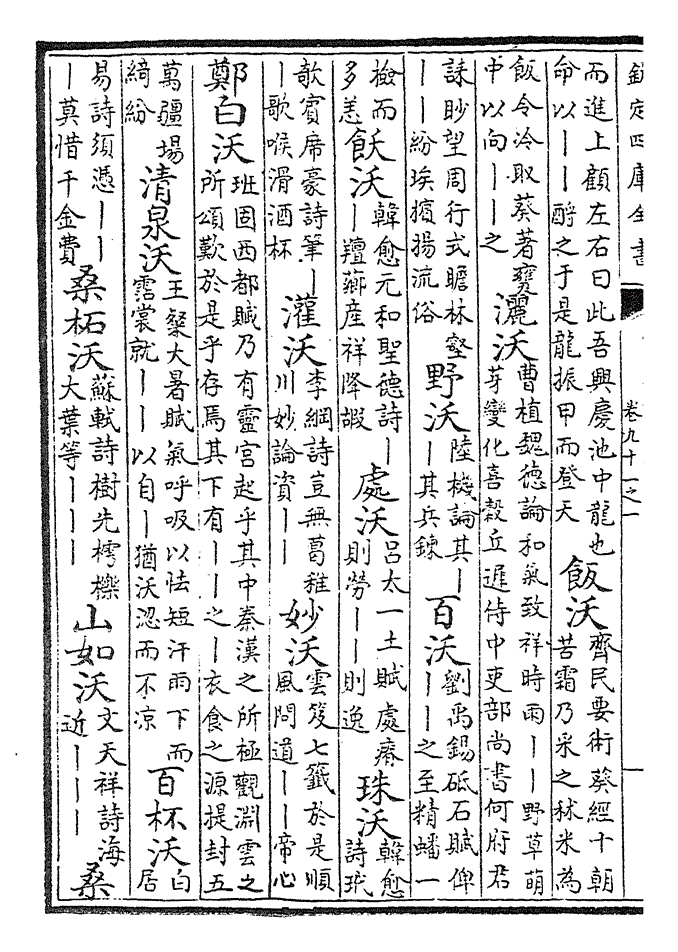 欽定四庫全書 卷九十一之一
而進上顧左右曰此吾興慶池中龍也命以丨丨酹之于是龍振甲而登天 飯沃 齊民要術葵經十朝苦霜乃采之秫米為
飯令冷取葵著甕中以向丨丨之 灑沃 曹植魏德論和氣致祥時雨丨丨野草萌芽變化喜穀丘遲侍中吏部尚書何府君
誄眇望周行式瞻林壑丨丨紛埃擯揚流俗 野沃 陸機論其丨丨其兵鍊 百沃 劉禹錫砥石賦俾丨丨之至精蟠一
檢而多恙 飫沃 韓愈元和聖德詩丨丨羶薌産祥降嘏 處沃 呂太一土賦處瘠則勞丨丨則逸 珠沃 韓愈詩玳
歌賓席豪詩筆丨丨歌喉滑酒杯 灌沃 李綱詩豈無葛稚川妙論資丨丨 妙沃 雲笈七籤於是順風問道丨丨帝心
鄭白沃 班固西都賦乃有靈宮起乎其中秦漢之所極觀淵雲之所頌歎於是乎存焉其下有丨丨之丨衣食之源提封五
萬疆場綺紛 清泉沃 王粲大暑賦氣呼吸以怯短汗雨下而霑裳就丨丨以自丨猶沃涊而不凉 百杯沃 白居
易詩須憑丨丨丨莫惜千金費 桑柘沃 蘇軾詩樹先樗櫟大葉等丨丨丨 山如沃 文天祥詩海近丨丨丨 桑